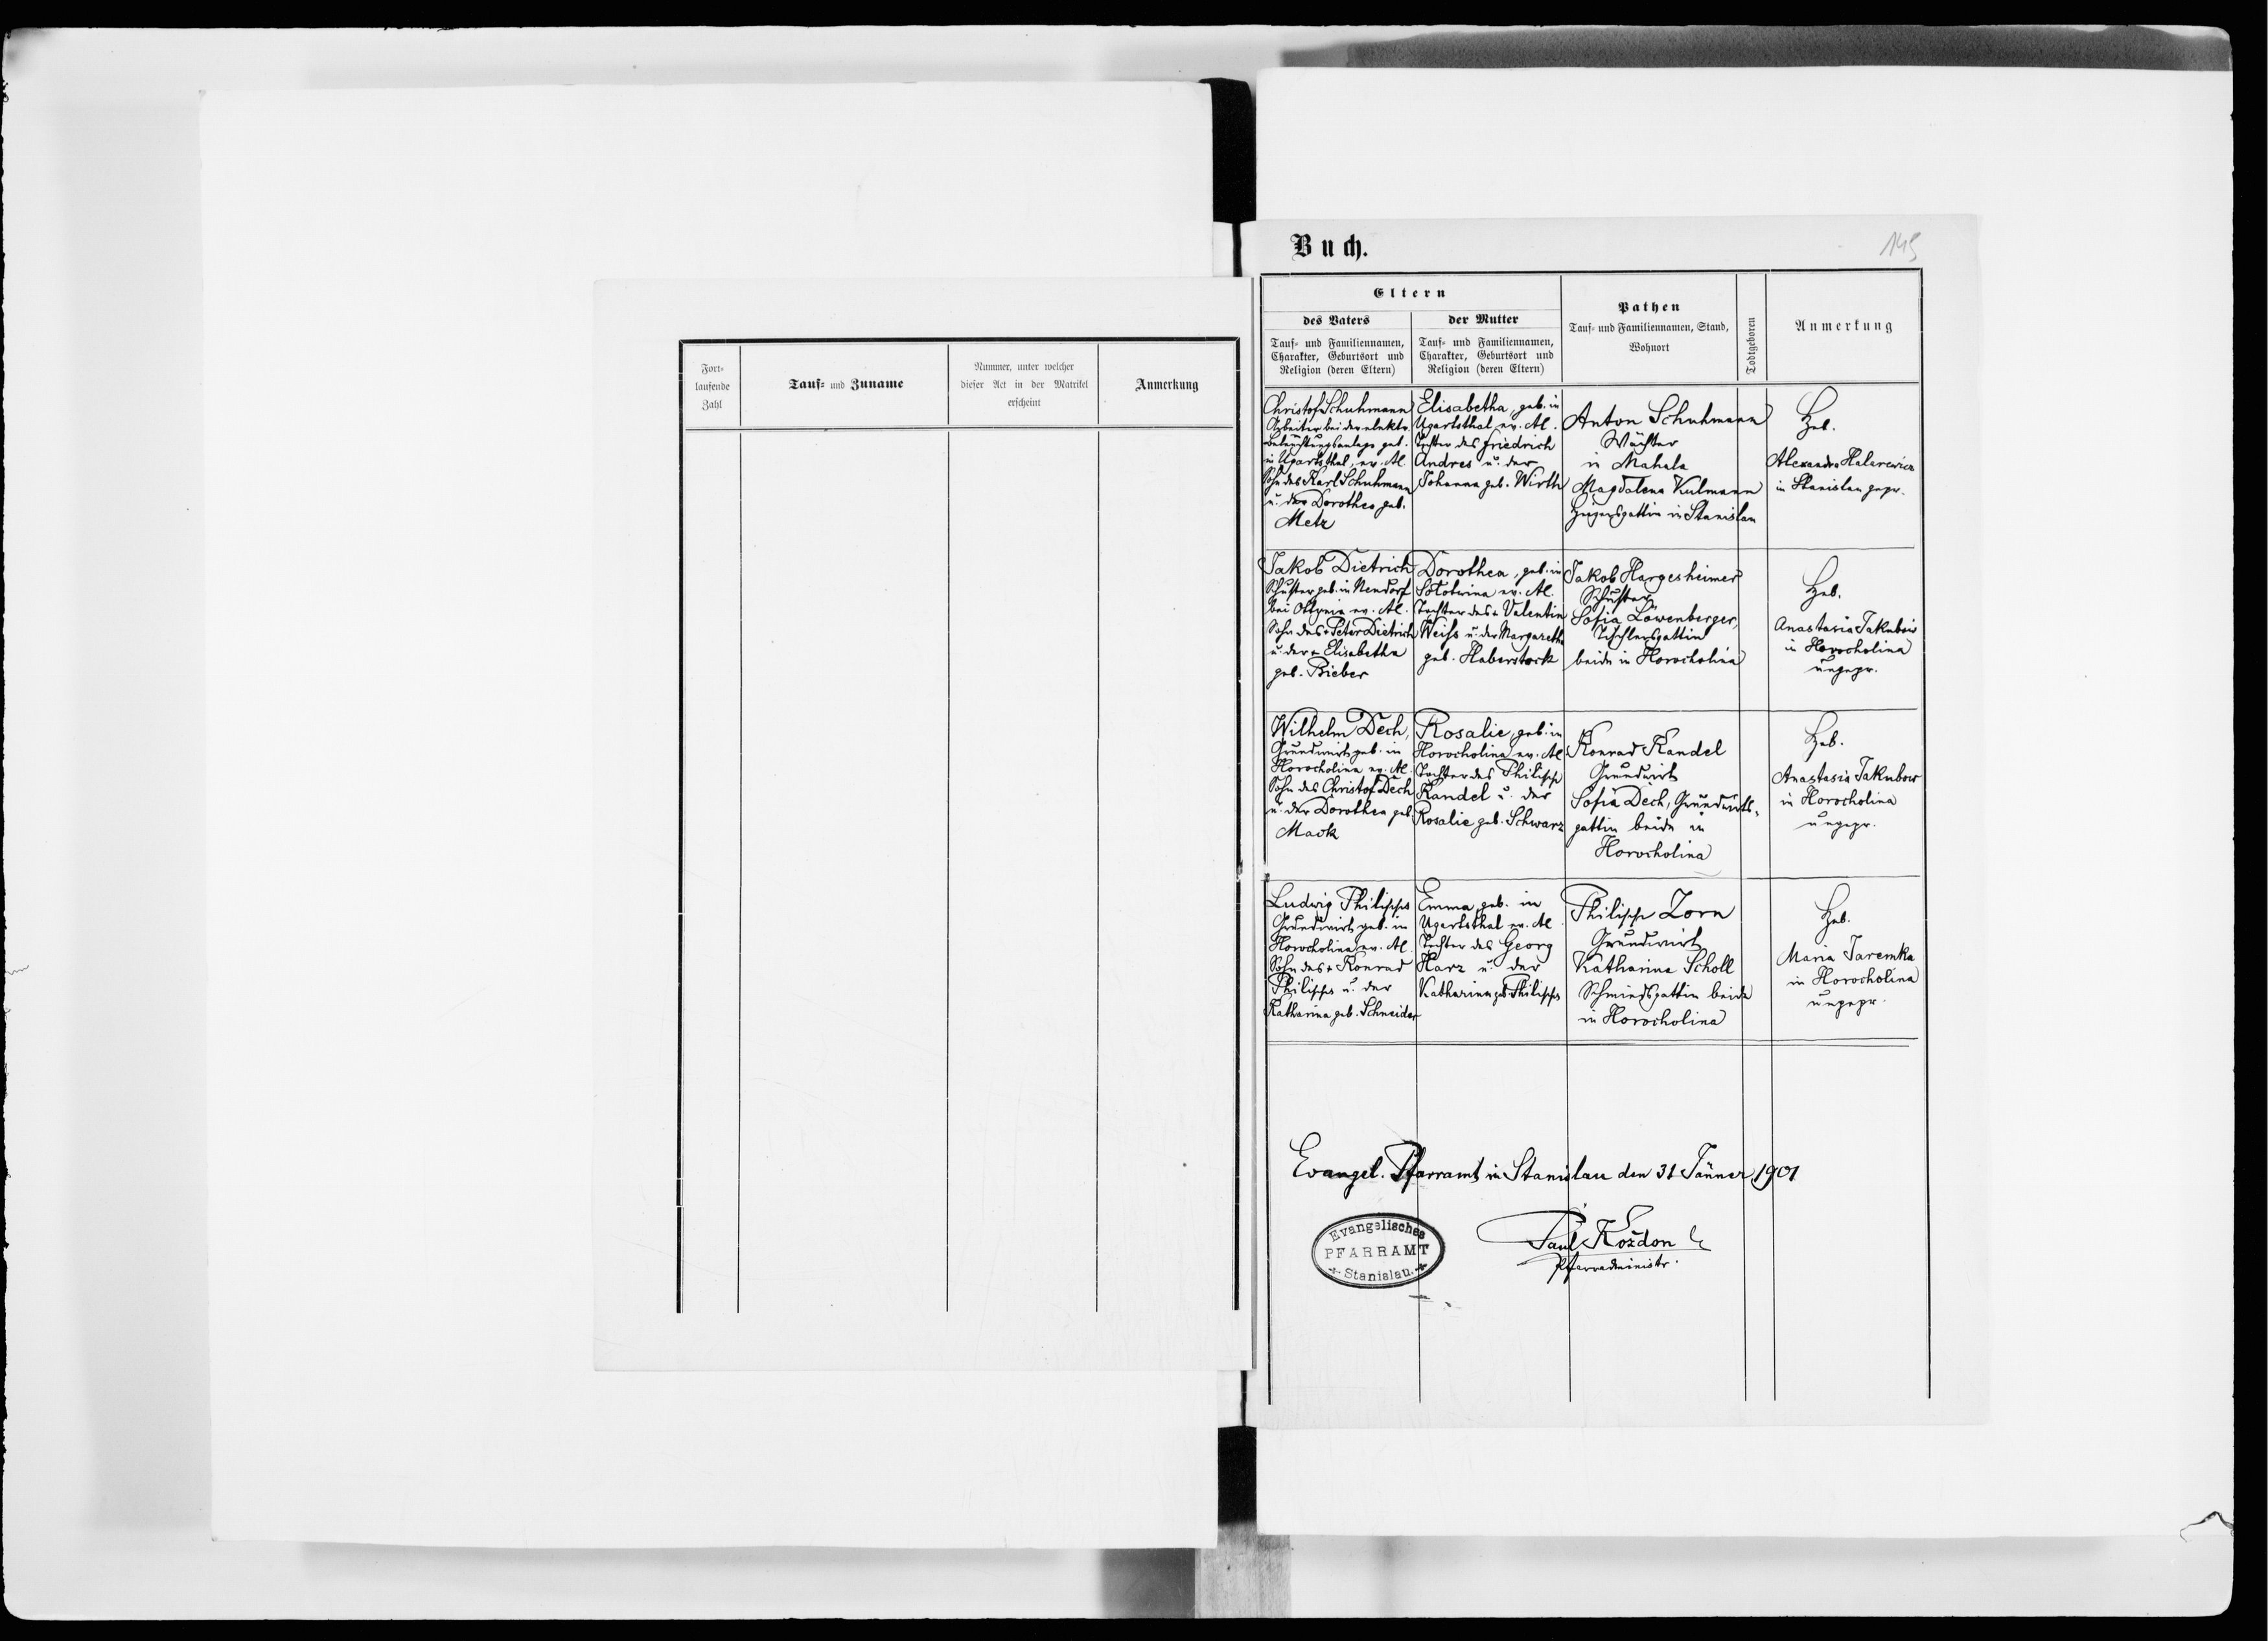 Fort-
laufende
Zahl
Tauf- und Zuname
Nummer, unter welcher
dieser Act in der Matrikel
erscheint
Anmerkung
Buch.
145
Eltern
des Vaters
Tauf- und Familiennamen,
Charakter, Geburtsort und
Religion (deren Eltern)
der Mutter
Tauf- und Familiennamen,
Charakter, Geburtsort und
Religion (deren Eltern)
Pathen
Tauf- und Familiennamen, Stand,
Wohnort
Todtgeboren
Anmerkung
Christof Schuhmann
Arbeiter bei der elektr.
Beleuchtungsanlage geb.
in Ugartsthal, ev. AC.
Sohn des Karl Schuhmann
u. der Dorothea geb.
Metz
Elisabetha, geb. in
Ugartsthal ev. AC.
Tochter des Friedrich
Andres u. der
Johanna geb. Wirth
Anton Schuhmann
Wächter
in Mahala
Magdalena Kulmann
Heizersgattin in Stanislau
Heb.
Alexandra Halarewicz
in Stanislau gepr.
Jakob Dietrich
Schuster geb. in Neudorf
bei Ottynia ev. AC.
Sohn des + Peter Dietrich
u. der + Elisabetha
geb. Bieber
Dorothea, geb. in
Solotwina ev. AC.
Tochter des + Valentin
Weiss u. der Margaretha
geb. Haberstock
Jakob Hargesheimer
Schuster
Sofia Löwenberger,
Tischlersgattin
beide in Horocholina
Heb.
Anastasia Jakubow
in Horocholina
ungepr.
Wilhelm Dech,
Grundwirt geb. in
Horocholina ev. AC.
Sohn des Christof Dech
u. der Dorothea geb.
Mack
Rosalie, geb. in
Horocholina ev. AC
Tochter des Philipp
Kandel u. der
Rosalie geb. Schwarz
Konrad Kandel
Grundwirt
Sofia Dech, Grundwirts-
gattin beide in
Horocholina
Heb.
Anastasia Jakubow
in Horocholina
ungepr.
Ludwig Philipps
Grundwirt geb. in
Horocholina ev. AC.
Sohn des + Konrad
Philipps u. der
Katharina geb. Schneider
Emma, geb. in
Ugartsthal ev. AC
Tochter des Georg
Harz u. der
Katharina geb. Philipps
Philipp Zorn
Grundwirt
Katharina Scholl
Schmiedsgattin beide
in Horocholina
Heb.
Maria Jaremka
in Horocholina
ungepr.
Evangel. Pfarramt in Stanislau den 31 Jänner 1901
Evangelisches
PFARRAMT
Stanislau.
Paul Koždon
Pfarradministr.